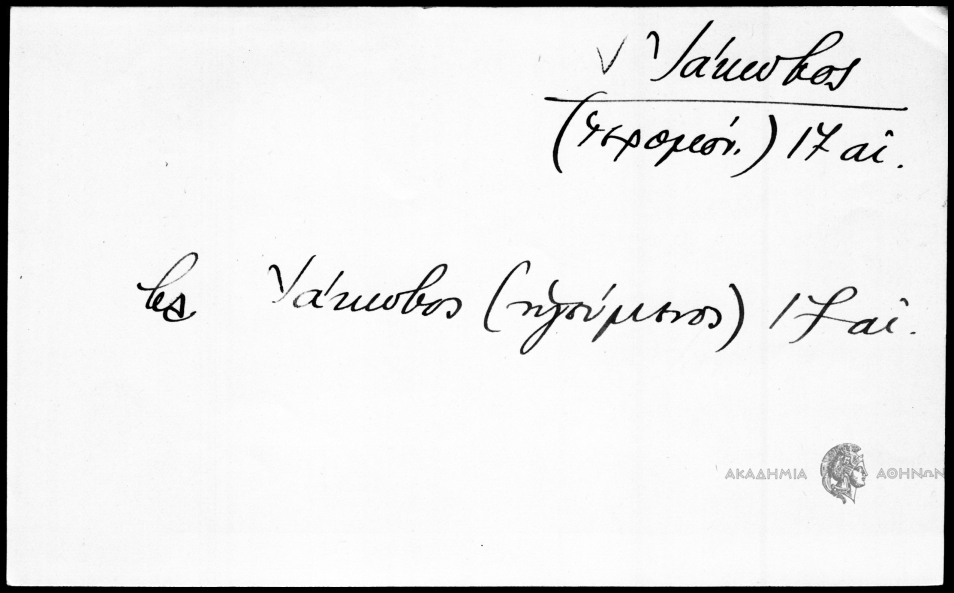 Ἰάκωβος
(ἱερομόν.) 17 αἰ.
βλ. Ἰάκωβος (ἡγούμενος) 17 αἰ.
ΑΚΑΔΗΜΙΑ ΑΘΗΝΩΝ